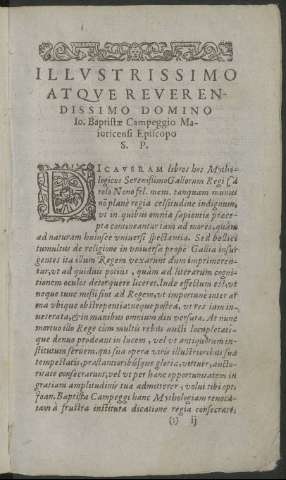 ILLVSTRISSIMO
ATQVE REVEREN-
DISSIMO DOMINO
Io. Baptistæ Campeggio Ma-
ioricensi Episcopo
S. P.
DICAVERAM libros hos Mytho-
logicos Serenissimo Gallorum Regi Ca
rolo Nono fel. mem. tanquam munus
nō planè regia celsitudine indignum,
vt in quibus omnia sapientiæ præce-
pta contineantur tam ad mores, quàm
ad naturam huiusce vniuersi spectantia. Sed bellici
tumultus de religione in vniuersa propè Gallia insur-
gentes ita illum Regem vexarunt dum imprimeren-
tur, vt ad quiduis potius, quàm ad literarum cogni-
tionem oculos detorquere liceret. Inde effectum est, vt
neque tunc missi sint ad Regem, vt importune inter ar
ma vbique obstrepentia neque postea, vt res iam in-
ueterata, & in manibus omnium diu versata. At nunc
mortuo illo Rege cùm multis rebus aucti locupletati-
que denuò prodeant in lucem, vel vt antiquorum in-
stitutum seruem, qui sua opera viris illustribus ob sua
tempestatis, præstantioribusque gloria, virtute, aucto-
ritate consecrarunt, vel vt per hanc opportunitatem in
gratiam amplitudinis tuæ admitterer, volui tibi opt.
Joan. Baptista Campegi hanc Mythologiam renoua-
tam à frustra instituta dicatione regia consecrare;
(i) ij